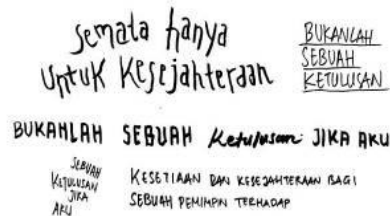 Semata hanya
Untuk Kesejahteraan
BUKANLAH
SEBUAH
KETULUSAN
BUKANLAH SEBUAH Ketulusan JIKA AKU
SEBUAH
KETULUSAN
JIKA
AKU
KESETIAAN DAN KESEJAHTERAAN BAGI
SEBUAH PEMIMPIN TERHADAP